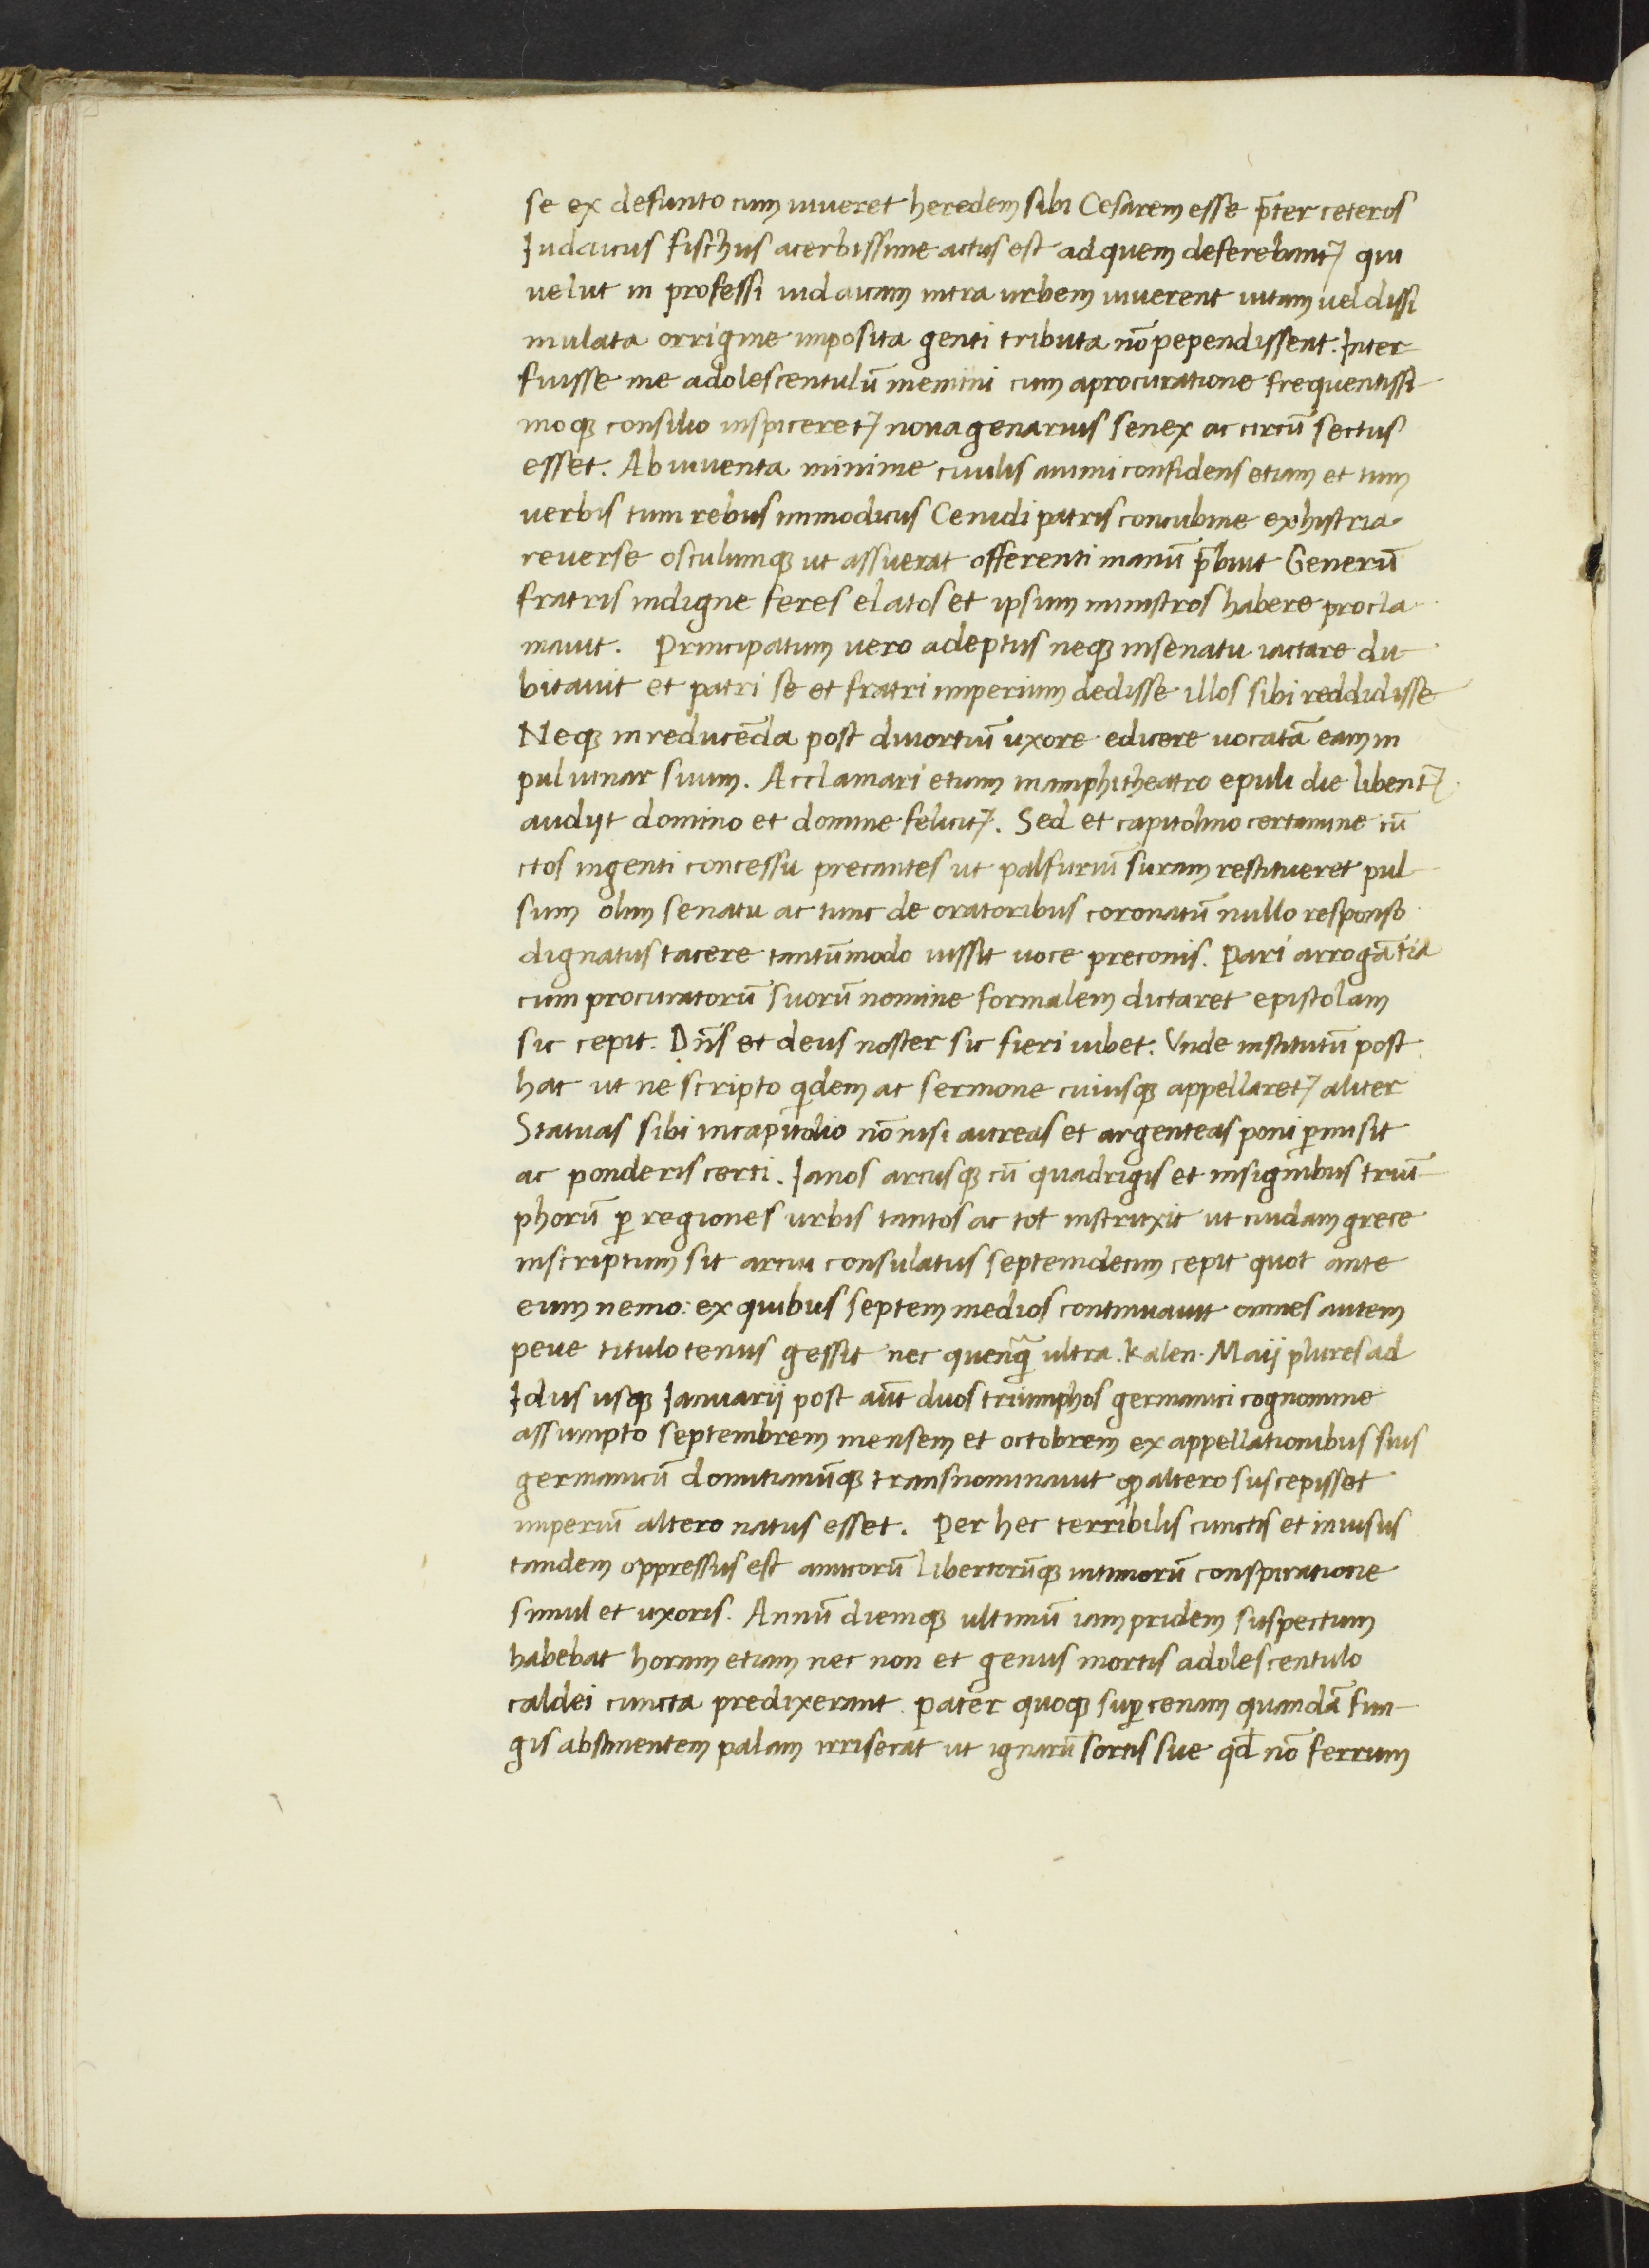 se ex defunto cum uiueret heredem sibi Cesarem esse p̄ter ceteros
Iudaicus fischus acerbissime actus est ad quem deferebant⁊ qui
uelut in professi iudaicam intra urbem uiuerent uitam uel dissi
mulata orrigine imposita genti tributa nō pependissent. Inter
fuisse me adolescentulū memini cum aprocuratione frequentissi
moqꝫ consilio inspiceret⁊ nonagenarius senex ac circū sectus
esset. Ab iuuenta minime ciuilis animi confidens etiam et tum
uerbis tum rebus immodicus Cenidi patris concubine exhistria
reuerse osculumqꝫ ut assuerat offerenti manū p̄buit Generū
fratris indigne feres elatos et ipsum ministros habere procla
mauit. Principatum uero adeptus neqꝫ insenatu iactare du
bitauit et patri se et fratri imperium dedisse illos sibi reddidisse
Neqꝫ inreducēda post diuortiū uxore edicere uocatā eam in
puluinar suum. Acclamari etiam inamphitheatro epuli die libent⁊
audijt domino et domine felicit⁊. Sed et capitolino certamine cū
ctos ingenti concessu precantes ut palfuriū suram restitueret pul
sum olim senatu ac tunc de oratoribus coronatū nullo responso
dignatus tacere tantūmodo iussit uoce preconis. Pari arrogātia
cum procuratorū suorū nomine formalem dictaret epistolam
sic cepit. Dn̄s et deus noster sic fieri iubet. Vnde institutū post
hac ut ne scripto qͥdem ac sermone cuiusqꝫ appellaret⁊ aliter
Statuas sibi incapitolio nō nisi aureas et argenteas poni ꝑmisit
ac ponderis certi. Ianos arcusqꝫ cū quadrigis et insignibus triū
phorū ꝑ regiones urbis tantos ac tot instruxit ut cuidam grece
inscriptum sit arcui consulatus septemdecim cepit quot ante
eum nemo: ex quibus septem medios continuauit omnes autem
peue titulo tenus gessit nec quenqᷓ ultra. kalen. Maij plures ad
Idus usqꝫ Ianuarij post aūt duos triumphos germanici cognomine
assumpto septembrem mensem et octobrem ex appellationibus suis
germanicū domitianūqꝫ transnominauit ꝙ altero suscepisset
imperiū altero natus esset. Per hec terribilis cunctis et inuisus
tandem oppressus est amicorū libertorūqꝫ intimorū conspiratione
simul et uxoris. Annū diemqꝫ ultimū iam pridem suspectum
habebat horam etiam nec non et genus mortis adolescentulo
caldei cuncta predixerant. pater quoqꝫ suꝑ cenam quandā fun
gis abstinentem palam irriserat ut ignarū sortis sue qd̄ nō ferrum